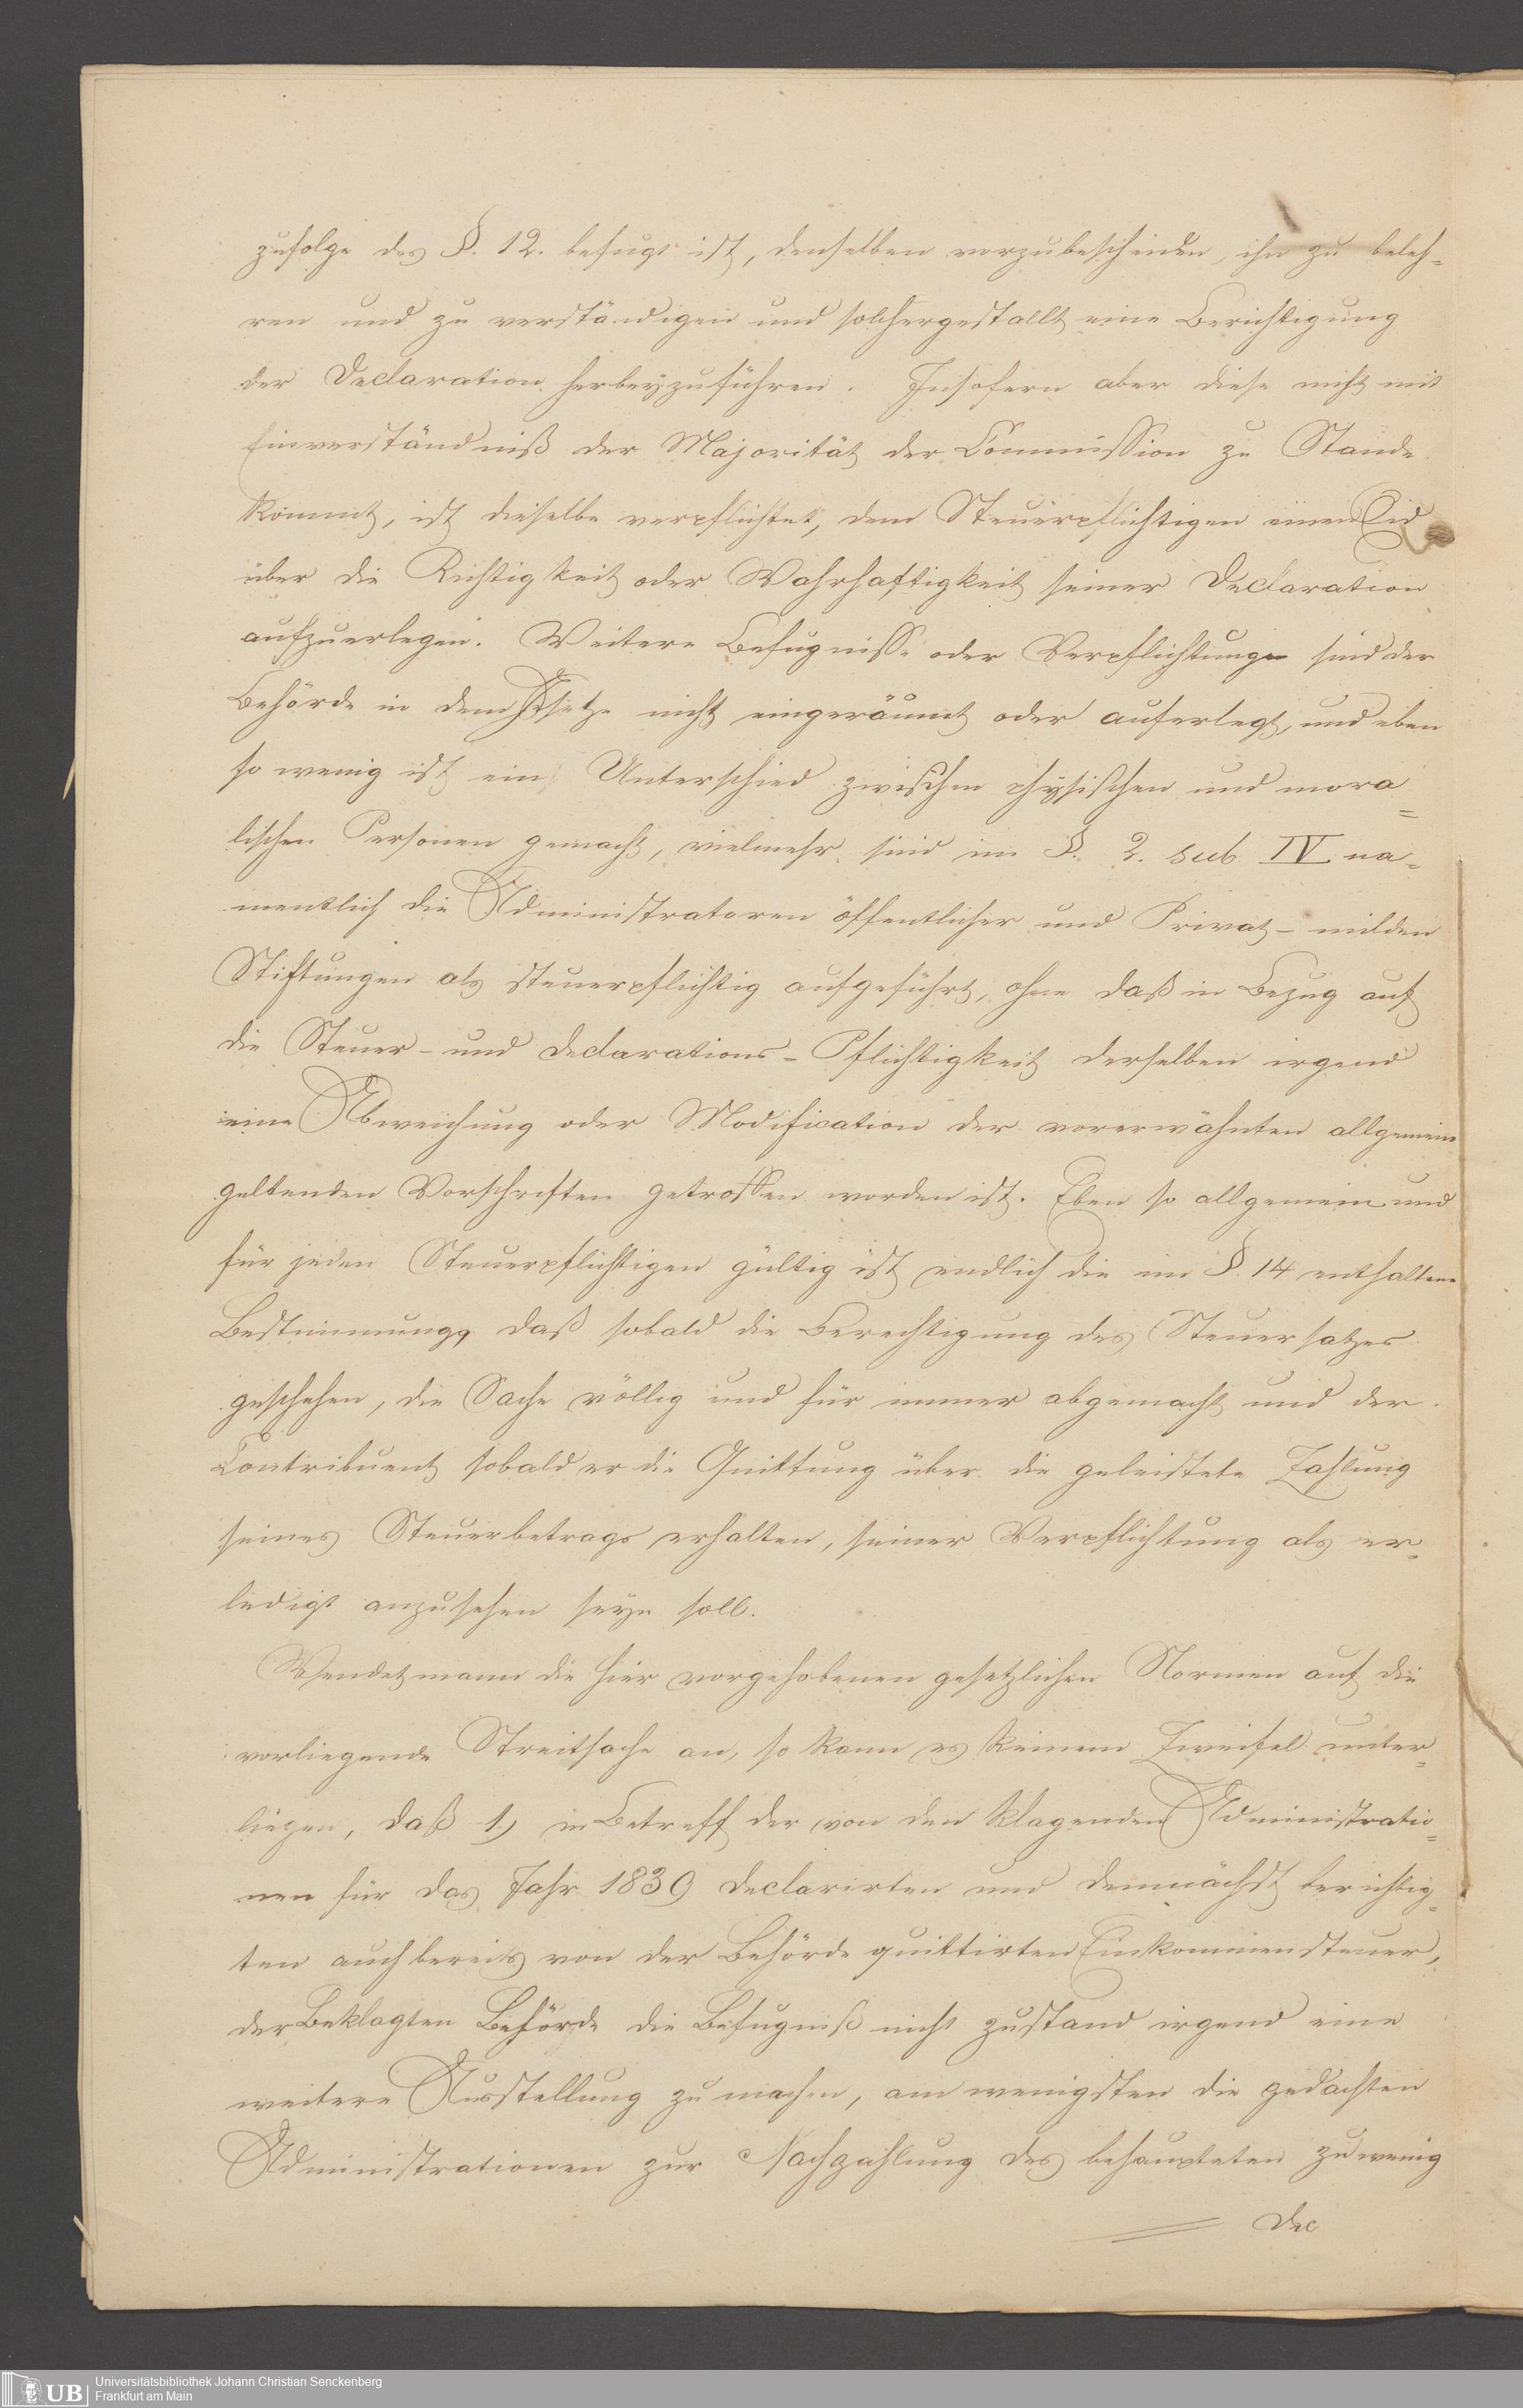 zufolge des §. 12. befugt ist, denselben vorzubescheiden, ihn zu beleh-
ren und zu verständigen und solchergestallt eine Berichtigung
der Declaration herbeyzuführen. Insofern aber diese nicht mit
Einverständniß der Majorität der Commission zu Stande
kommt, ist dieselbe verpflichtet, dem Steuerpflichtigen einen Eid
über die Richtigkeit oder Wahrhaftigkeit seiner Declaration
aufzuerlegen. Weitere Befugnisse oder Verpflichtungen sind der
Behörde in dem Gesetze nicht eingeräumt oder auferlegt, und eben
so wenig ist ein Unterschied zwischen physischen und mora=
lischen Personen gemacht, vielmehr sind im §. 2. sub IV na=
mentlich die Administratoren öffentlicher und Privat- milden
Stiftungen als steuerpflichtig aufgeführt, ohne daß in Bezug auf
die Steuer- und Declarations-Pflichtigkeit derselben irgend
eine Abweichung oder Modification der vorerwähnten allgemein
geltenden Vorschriften getroffen worden ist. Eben so allgemein und
für jeden Steuerpflichtigen gültig ist endlich die im §. 14 enthaltene
Bestimmung, daß sobald die Berechtigung des Steuersatzes
geschehen, die Sache völlig und für immer abgemacht und der
Contribuent sobald er die Quittung über die geleistete Zahlung
seines Steuerbetrags erhalten, seiner Verpflichtung als er=
ledigt anzusehen seyn soll.
Wendet mann die hier vorgehobenen gesetzlichen Normen auf die
vorliegende Streitsache an, so kann es keinem Zweifel unter=
liegen, daß 1, in Betreff der von den klagenden Administratio=
nen für das Jahr 1839 declarirten und demnächst berichtig=
ten auch bereits von der Behörde quittirten Einkommensteuer,
der Beklagten Behörde die Befugniß nicht zustand irgend eine
weitere Ausstellung zu machen, am wenigsten die gedachten
Administrationen zur Nachzahlung des behaupteten zu wenig
Dec
UB Universitätsbibliothek Johann Christian Senckenberg
Frankfurt am Main